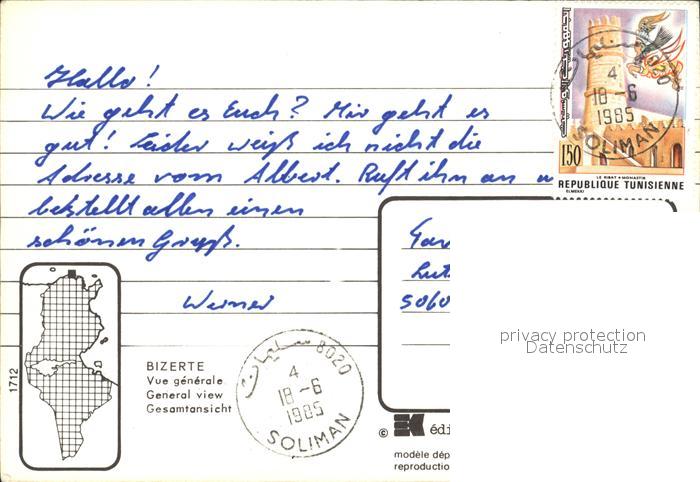 Hallo!
Wie geht es Euch? Mir geht es
gut! Leider weiß ich nicht die
Adresse vom Albert. Ruft ihn an u
bestellt allen einen
schönen Gruß.
Werner
5060
privacy protection
Datenschutz
1712
BIZERTE
Vue générale
General view
Gesamtansicht
8020
4
18-6
1985
SOLIMAN
© EK édi
modèle dép
reproductio
8020
4
18-6
1985
SOLIMAN
150
LE RIBAT • MONASTIR
REPUBLIQUE TUNISIENNE
ELMEKKI